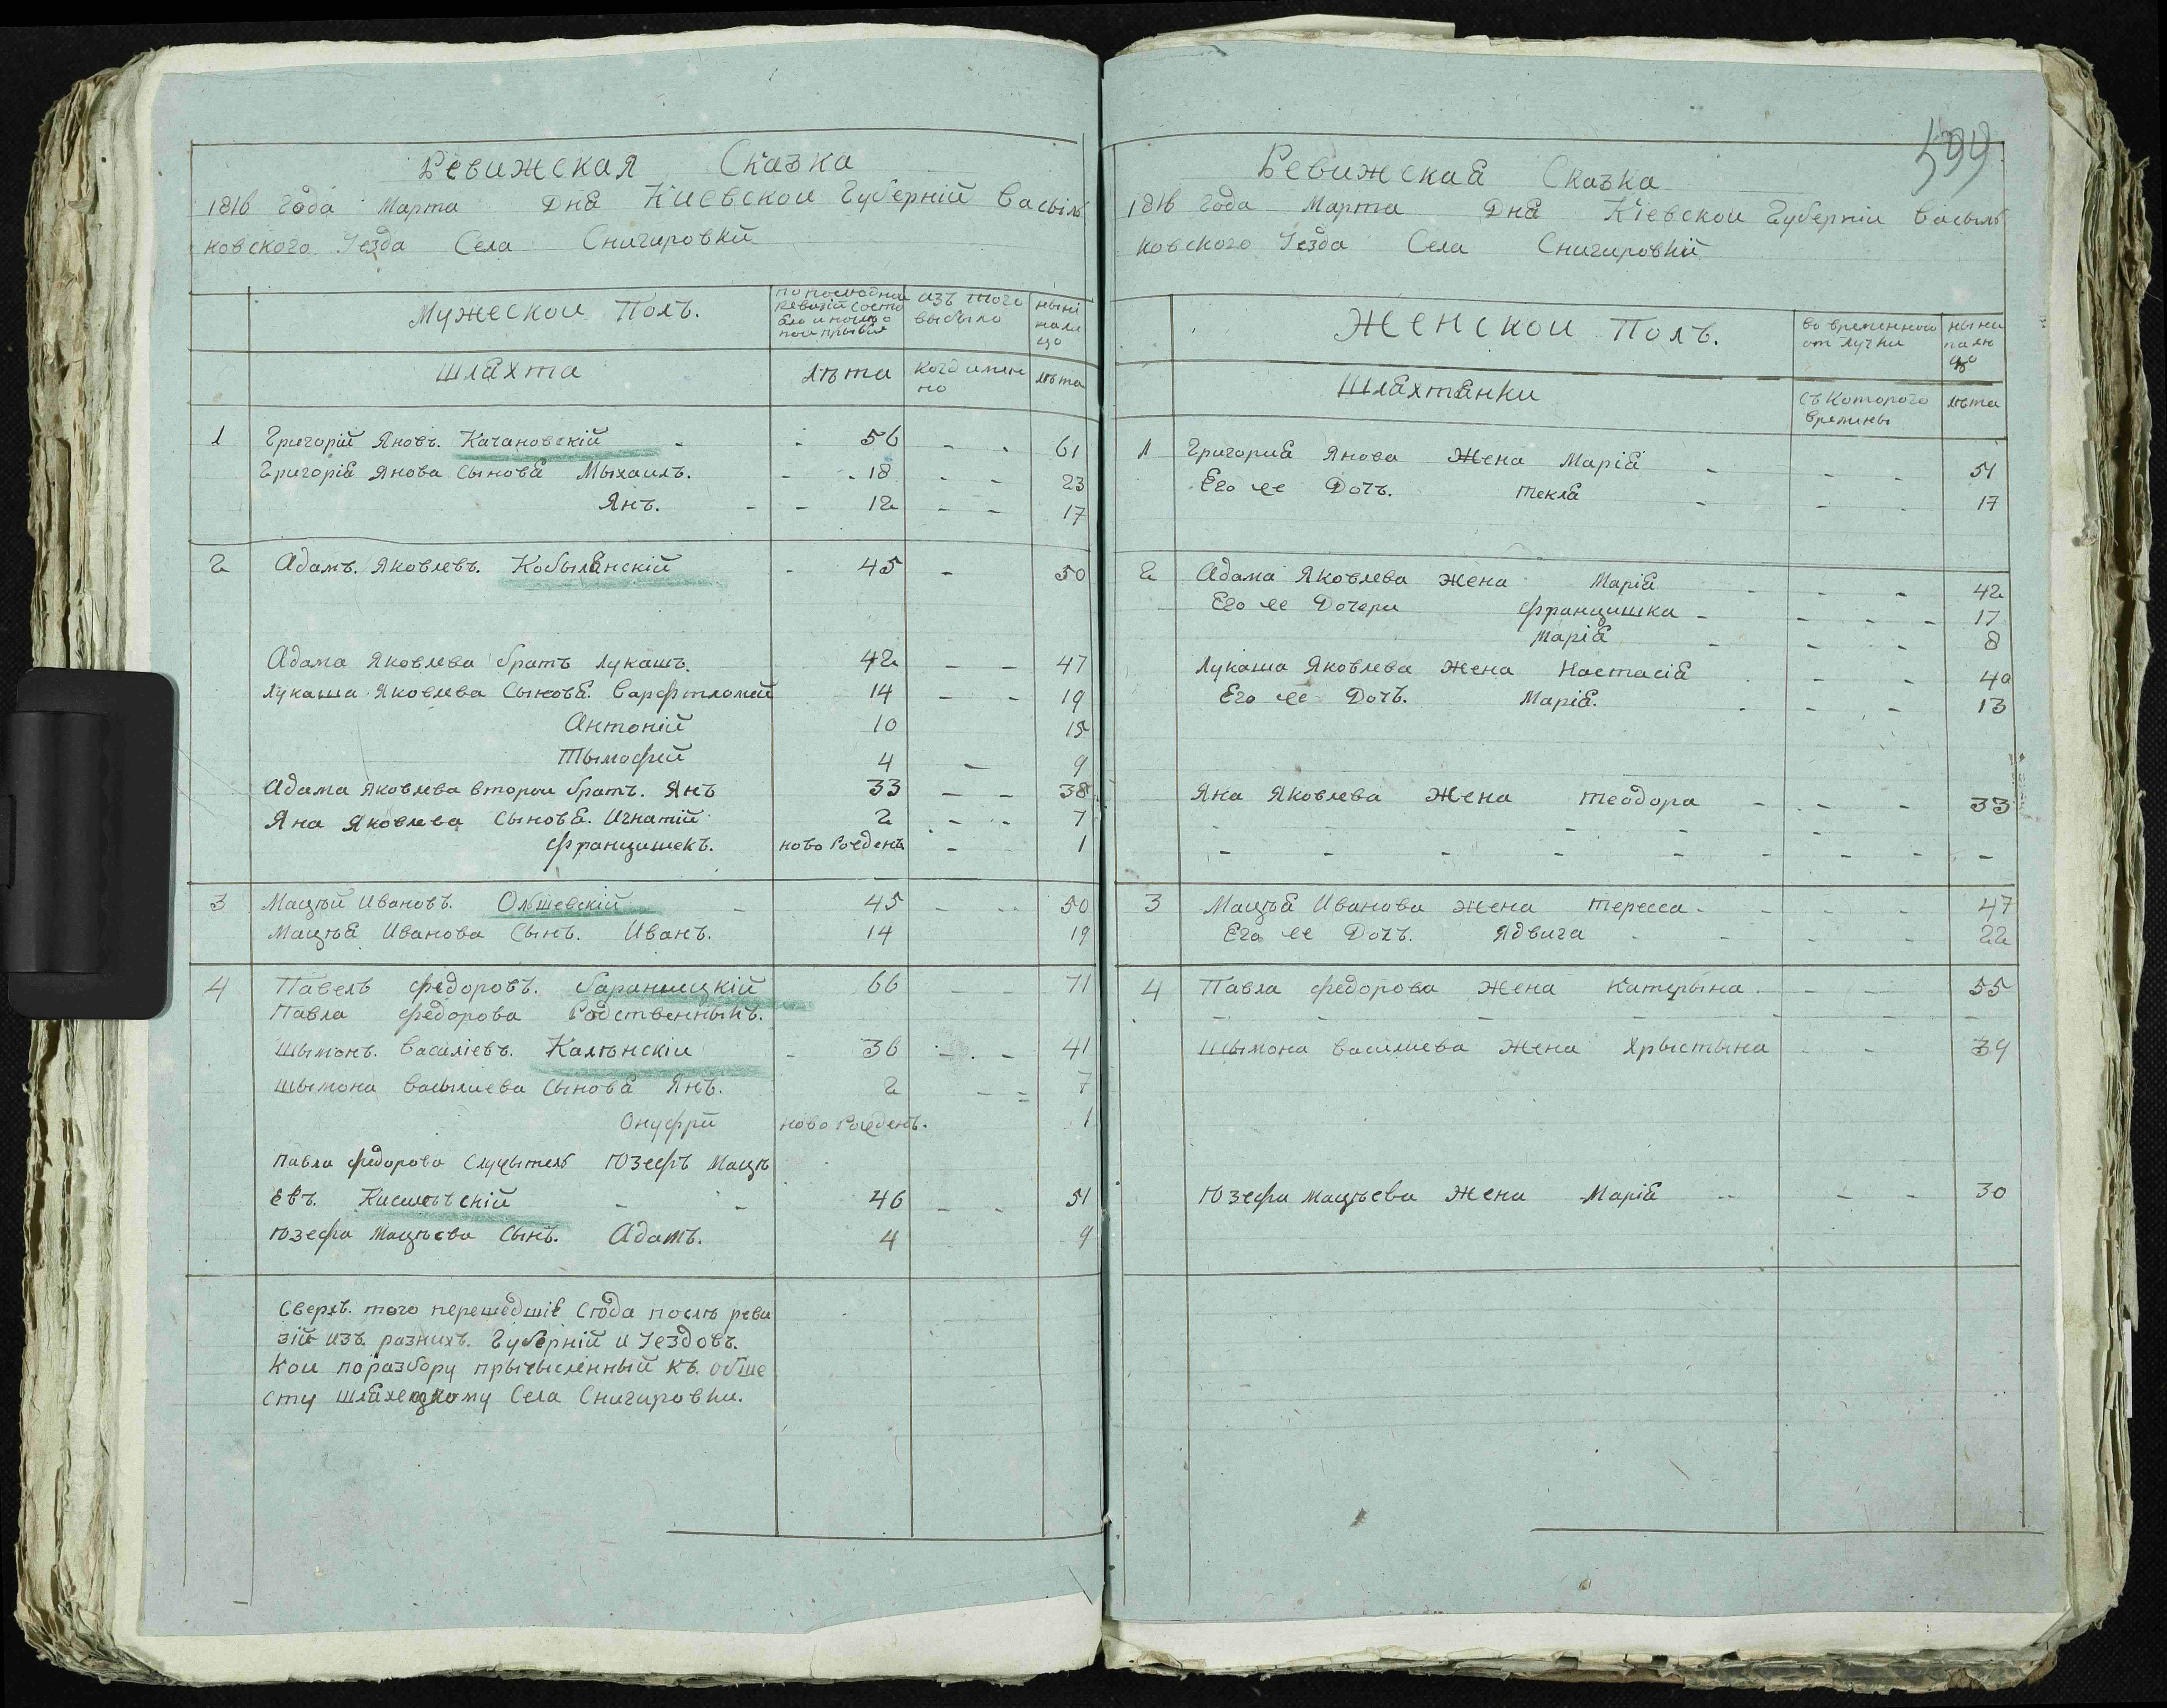 Ревижская Сказка
1816 года Марта Дня Киевской Губерній Васыль
ковского Уезда Села Снигировкй
Мужеской Полъ.
изъ того
выбыло
ныни
нали
цо
Шляхта
лѣта
когд имен
но
лѣта
1 Григорій Яновъ. Качановскій - - 56 - - 61
Григорія Янова Сыновя Мыхаилъ. - - 18 - - 23
Янъ. - - 12 - - 17
2 Адамъ. Яковлевъ. Кобылянскій - 45 - 50
Адама Яковлева братъ Лукашъ. 42 - - 47
Лукаша Яковлева Сыновя. Варфтломей 14 - - 19
Антоній 10 15
Тымофей 4 - 9
Адама Яковлева второи братъ. Янъ 33 - - 38
Яна Яковлева Сыновя. Игнатій 2 - - 7
Францишекъ. ново рожденъ - - 1
3 Мацѣй Ивановъ. Ольшевскій - 45 - - 50
Мацѣя Иванова Сынъ. Иванъ. 14 19
4 Павелъ Федоровъ. 66 - - 71
Павла Федорова Родственныкъ.
Шымонъ. Василіевъ. Калѣнскіи - 36 - - 41
Шымона Васылиева Сыновя Янъ. 2 - = 7
Онуфри ново рожденъ. 1
Павла Федорова Служытель Юзефъ Мацѣ
евъ. - - 46 - - 51
Юзефа Мацѣева Сынъ. Адамъ. 4 9
Сверхъ. того перешедшіе Сюда послѣ реви
зій изъ разнихъ. Губерній и Уездовъ.
Кои по разбору прычысленный къ. обще
сту шляхецкому Села Снигировки.
599
Ревижская Сказка
1816 года Марта Дня Кіевской Губерніи Васыль
ковского Уезда Села Снигировкій
Женской Полъ.
во временною
отлучки
ныни
нали
цо
Шляхтянки
съ которого
времены
лѣта
1 Григория Янова Жена Марія - - - 51
Его же Дочъ. Текля - - - 17
2 Адама Яковлева жена Марія - - - 42
Его же Дочери Францишка - - - - 17
Марія - - - 8
Лукаша Яковлева жена Настасія - - 40
Его же Дочъ. Марія. - - - 13
Яна Яковлева Жена Теодора - - - 33
- - - - - -
- - - - - - - -
3 Мацѣя Иванова жена Тересса - - - - 47
Его же Дочъ. Ядвига - - - - 22
4 Павла Федорова жена Катерына - - - 55
- - - - - - - -
Шымона Василиева жена Хрыстына - - 39
Юзефа Мацѣева жена Марія - - - 30